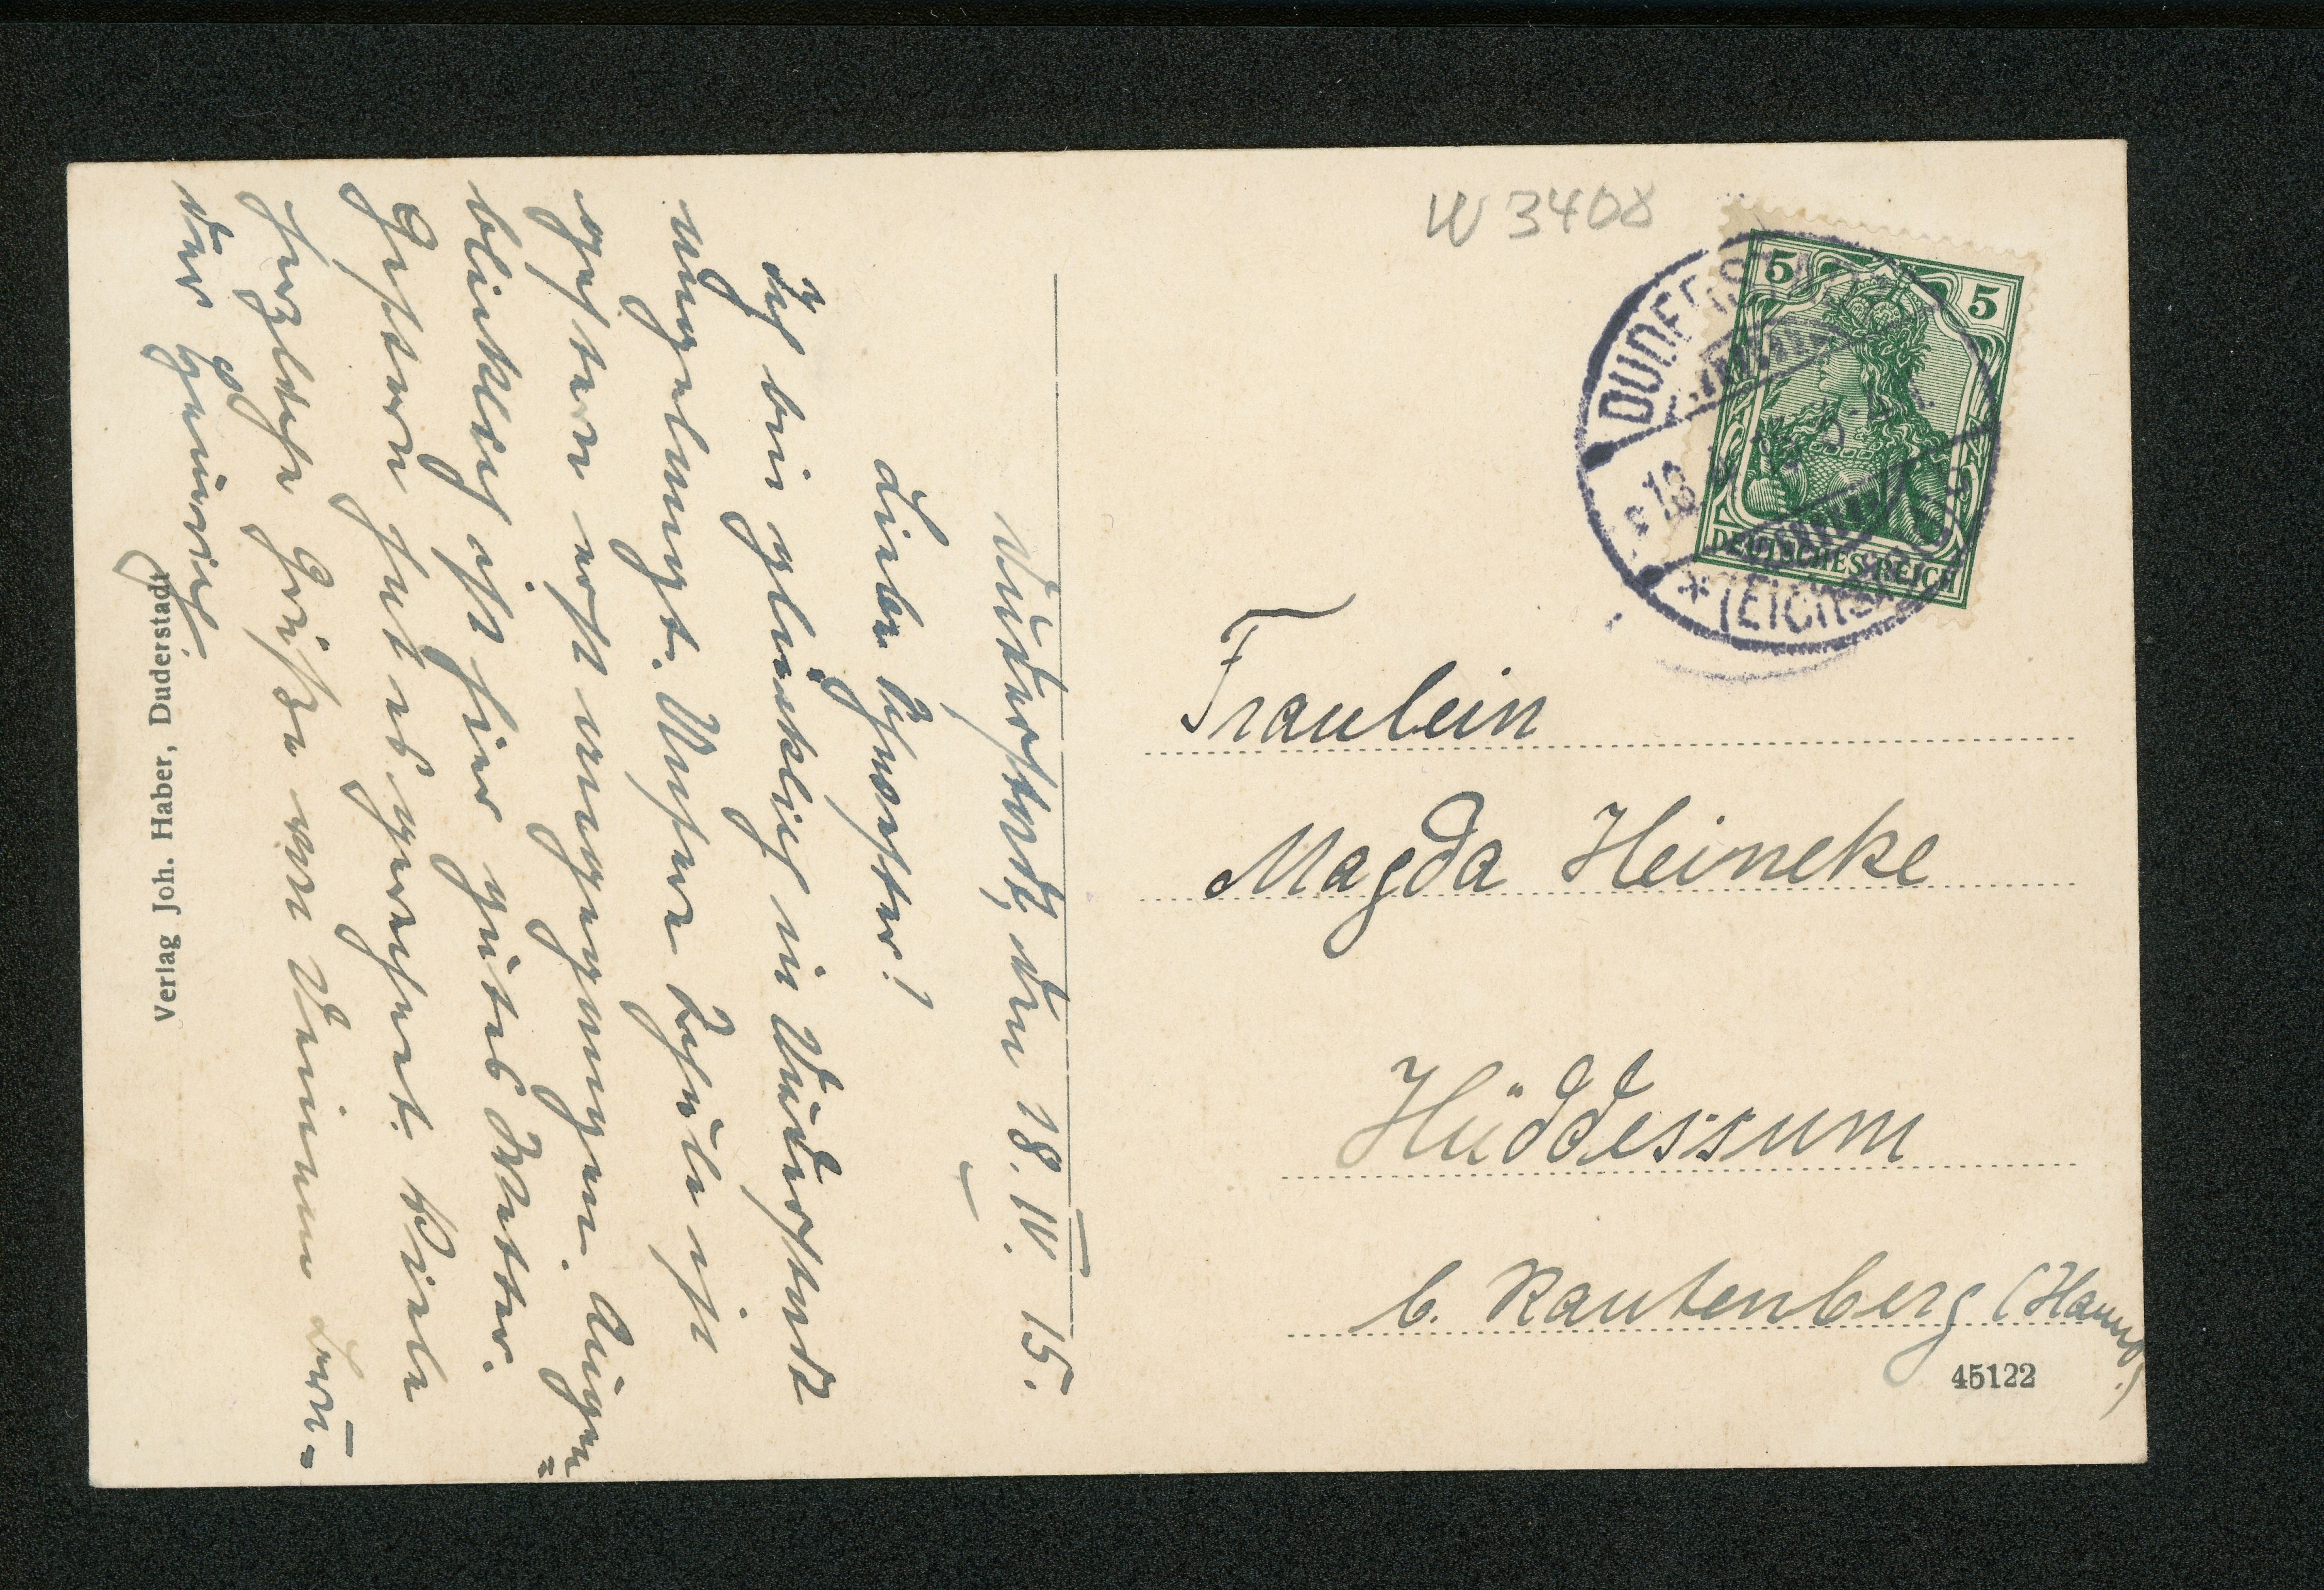 Duderstadt, den 18. IV. 15.
Liebe Schwester!
Ich bin glücklich in Duderstadt
angelangt. Unsere Schule ist
gestern erst angegangen. Augen=
blicklich ist hier gutes Wetter.
Gestern hat es geregnet. Viele
herzliche Grüße von Deinem Bru=
der Heinrich.
Verlag Joh. Haber, Duderstadt
W 3408
5 5
DEUTSCHES REICH
Fraulein
Magda Heineke
Hüddessum
b. Rautenberg (Hannov.)
45122